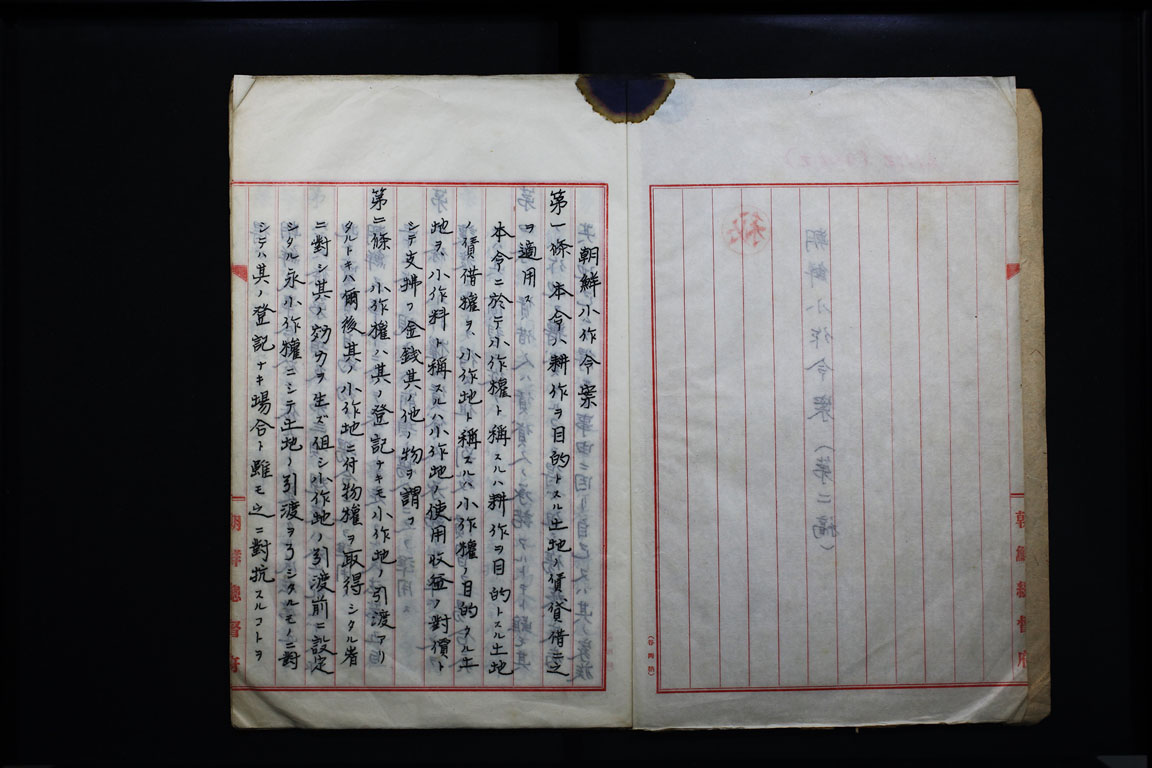 朝鮮小作令案
第一條 本令ハ耕作ヲ目的トスル土地ノ賃貸借ニ之
ヲ適用ス
本令ニ於テ小作權ト稱スルハ耕作ヲ目的トスル土地
ノ賃借權ヲ、小作地ト稱スルハ小作權ノ目的タル土
地ヲ、小作料ト稱スルハ小作地ノ使用收益ノ對價ト
シテ支拂フ金錢其ノ他ノ物ヲ謂フ
第二條 小作權ハ其ノ登記ナキモ小作地ノ引渡アリ
タルトキハ爾後其ノ小作地ニ付物權ヲ取得シタル者
ニ對シ其ノ効力ヲ生ズ但シ小作地ノ引渡前ニ設定
シタル永小作權ニシテ土地ノ引渡ヲ了シタルモノニ對
シテハ其ノ登記ナキ場合ト雖モ之ニ對抗スルコトヲ
朝鮮總督府